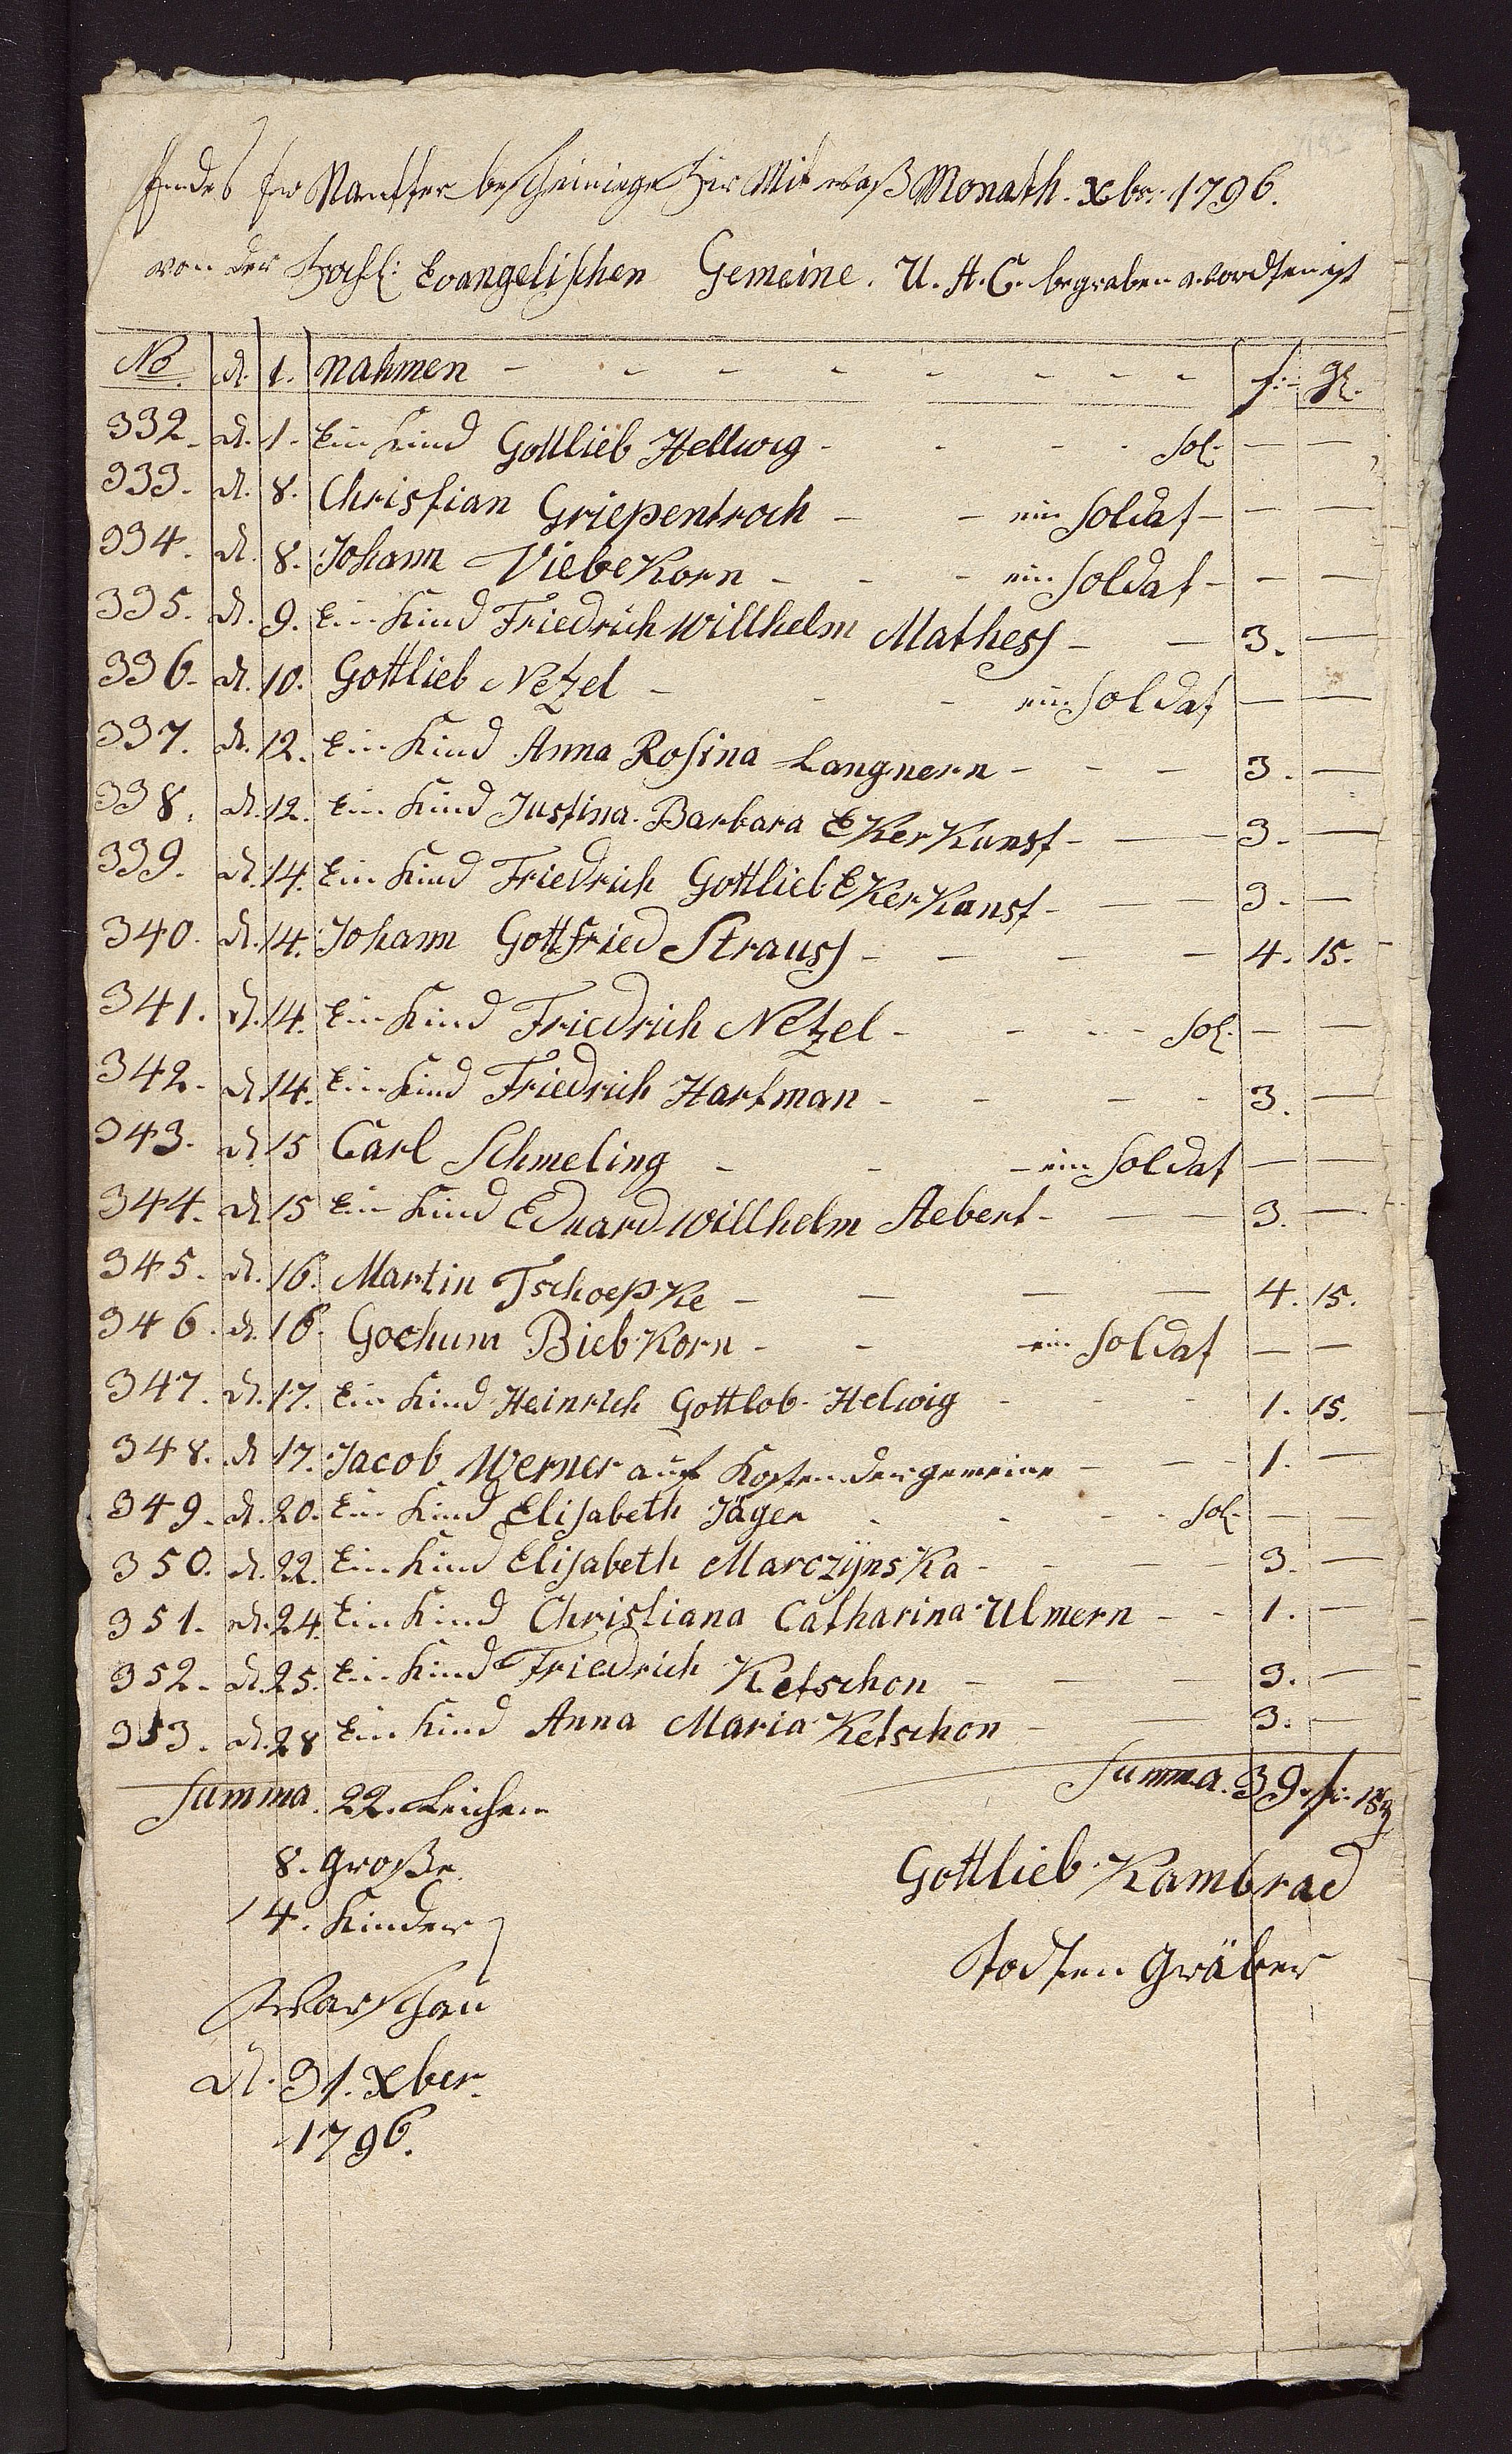 bescheinige hier Mit waß Monath. Xbr: 1796.
von der Hochl: Evangelischen Gemeine. U. A. C. begraben wordten ist
No. d. 1. Nahmen - - - - - - - - f: gl.
332. d. 1. Ein Kind Gottlieb Hellwig - - - - Sol: — —
333. d. 8. Christian Griependroch - - ein Soldat - — —
334. d. 8. Johann ViebeKorn - - - ein Soldat - — —
335. d. 9. Ein Kind Friedrich Willhelm Mathess - — 3. —
336. d. 10. Gottlieb Netzel - - - ein Soldat — —
337. d. 12. Ein Kind Anna Rosina Langnern - - — 3. —
338. d. 12. Ein Kind Justina Barbara EKerKunst - — — 3. —
339. d. 14. Ein Kind Friedrich Gottlieb EKerKunst - — — 3. —
340. d. 14. Johann Gottfried Strauss - — — — 4. 15.
341. d. 14. Ein Kind Friedrich Netzel - - - - Sol. — —
342. d. 14. Ein Kind Friedrich Hartman - - — - 3. —
343. d. 15 Carl Schmeling - - - ein Soldat — —
344. d. 15 Ein Kind Eduard Willhelm Aebert - — — 3. —
345. d. 16. Martin TschoepKe - — — — 4. 15.
346. d. 16. Gochum BiebKorn - - ein Soldat — —
347. d. 17. Ein Kind Heinrich Gottlob Helwig - - - 1. 15.
348. d. 17. Jacob Werner auf Kosten der gemeine - — - 1. —
349. d. 20. Ein Kind Elisabeth Jäger - - - - Sol. — —
350. d. 22. Ein Kind Elisabeth MarczÿnsKa - - — — 3. —
351. d. 24. Ein Kind Christiana Catharina Ulmern - - 1. —
352. d. 25. Ein Kind Friedrich Ketschon - — — 3. —
353. d. 28 Ein Kind Anna Maria Ketschon - — 3. —
Summa. 22. Leichen Summa. 39. f: 15 g
8. Große
14. Kinder
Gottlieb Kambrad
Todten Gräber
Warschau
d. 31. Xber.
1796.